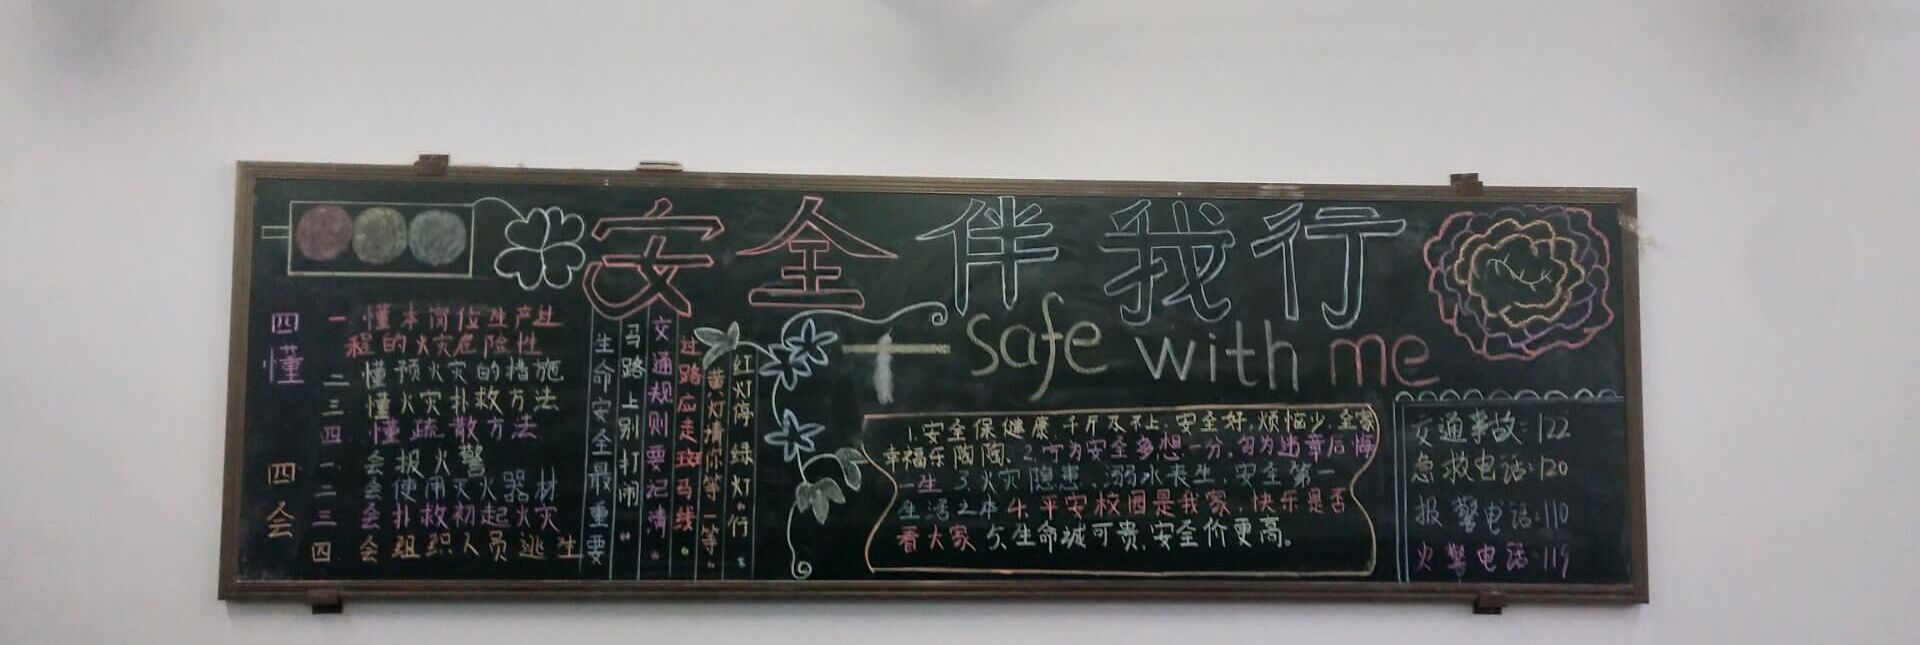 安全伴我行
safe with me
四懂
一 懂本岗位生产过
程的火灾危险性
二 懂预火灾的措施
三 懂火灾扑救方法
四 懂疏散方法
四会
一 会报火警
二 会使用灭火器材
三 会扑救初起火灾
四 会组织人员逃生
红灯停 绿灯行
黄灯请你等一等
过路应走斑马线
交通规则要记清
马路上别打闹
生命安全最重要
1.安全保健康,千斤及不上,安全好,烦恼少,全家
幸福乐陶陶、2.宁为安全多想一分,勿为违章后悔
一生 3.火灾隐患、溺水丧生,安全第一
生活之本 4.平安校园是我家,快乐是否
看大家 5.生命诚可贵,安全价更高。
交通事故:122
急救电话:120
报警电话:110
火警电话:119